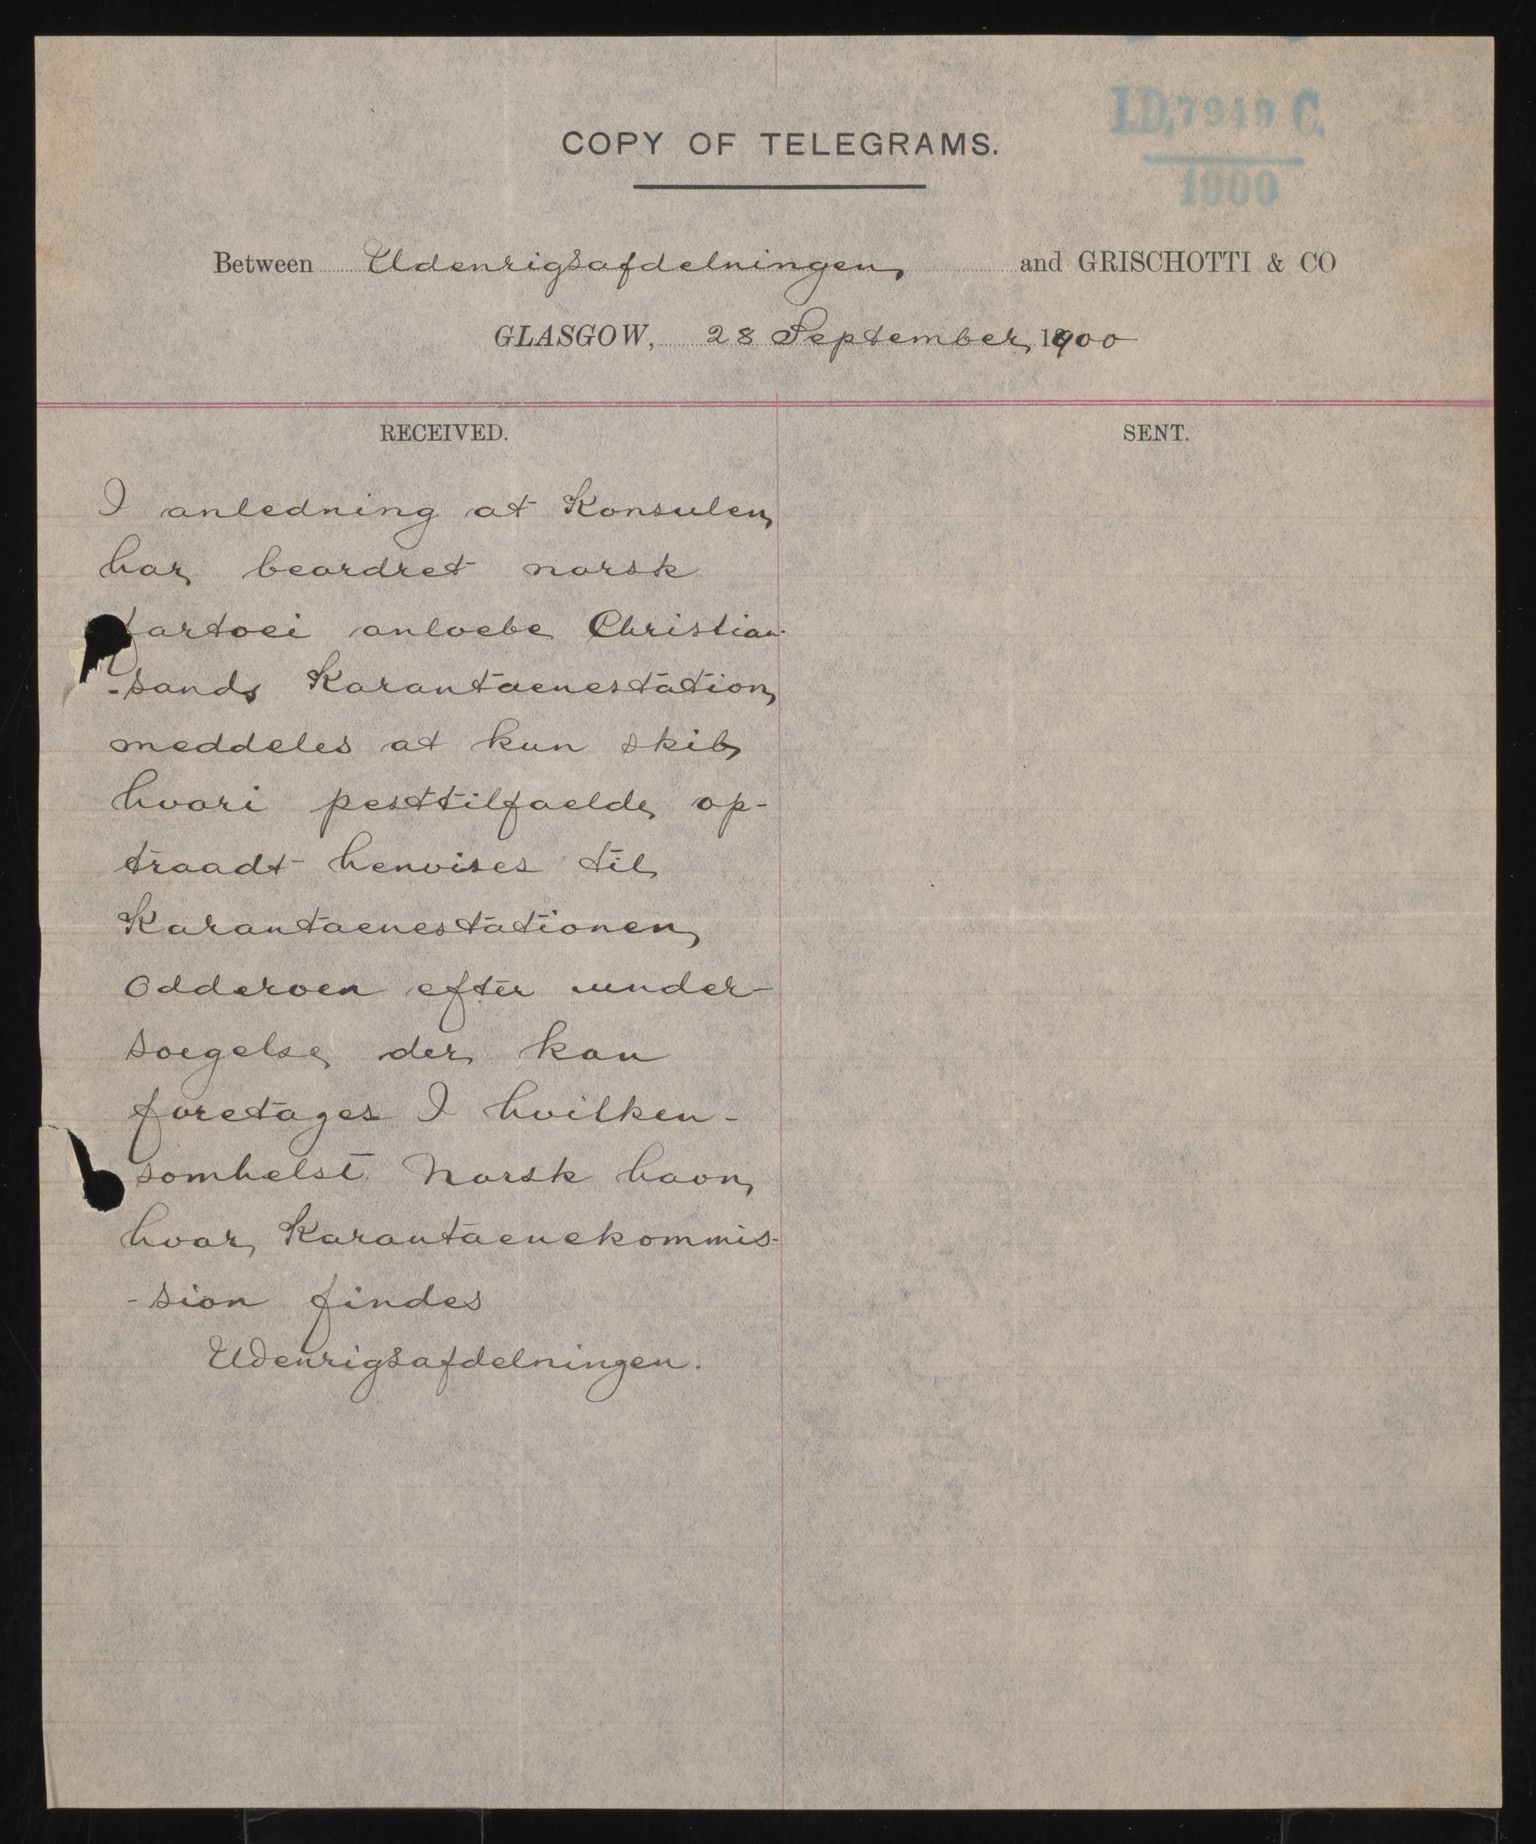 I.D. 7949 C.
1900
COPY OF TELEGRAMS.
Between Udenrigsafdelningen, and GRISCHOTTI & CO
GLASGOW, 28 September, 1900
RECEIVED.
SENT.
I anledning at Konsulen
har beordret norsk
fartoei anloebe Christian-
-sands Karantaenestation
meddeles at kun skib
hvori pesttilfaelde op-
traadt henvises til
Karantaenestationen
Odderoen efter under-
soegelse der kan
foretages I hvilken-
somhelst Norsk havn
hvor Karantaenekommis-
-sion findes
Udenrigsafdelningen.